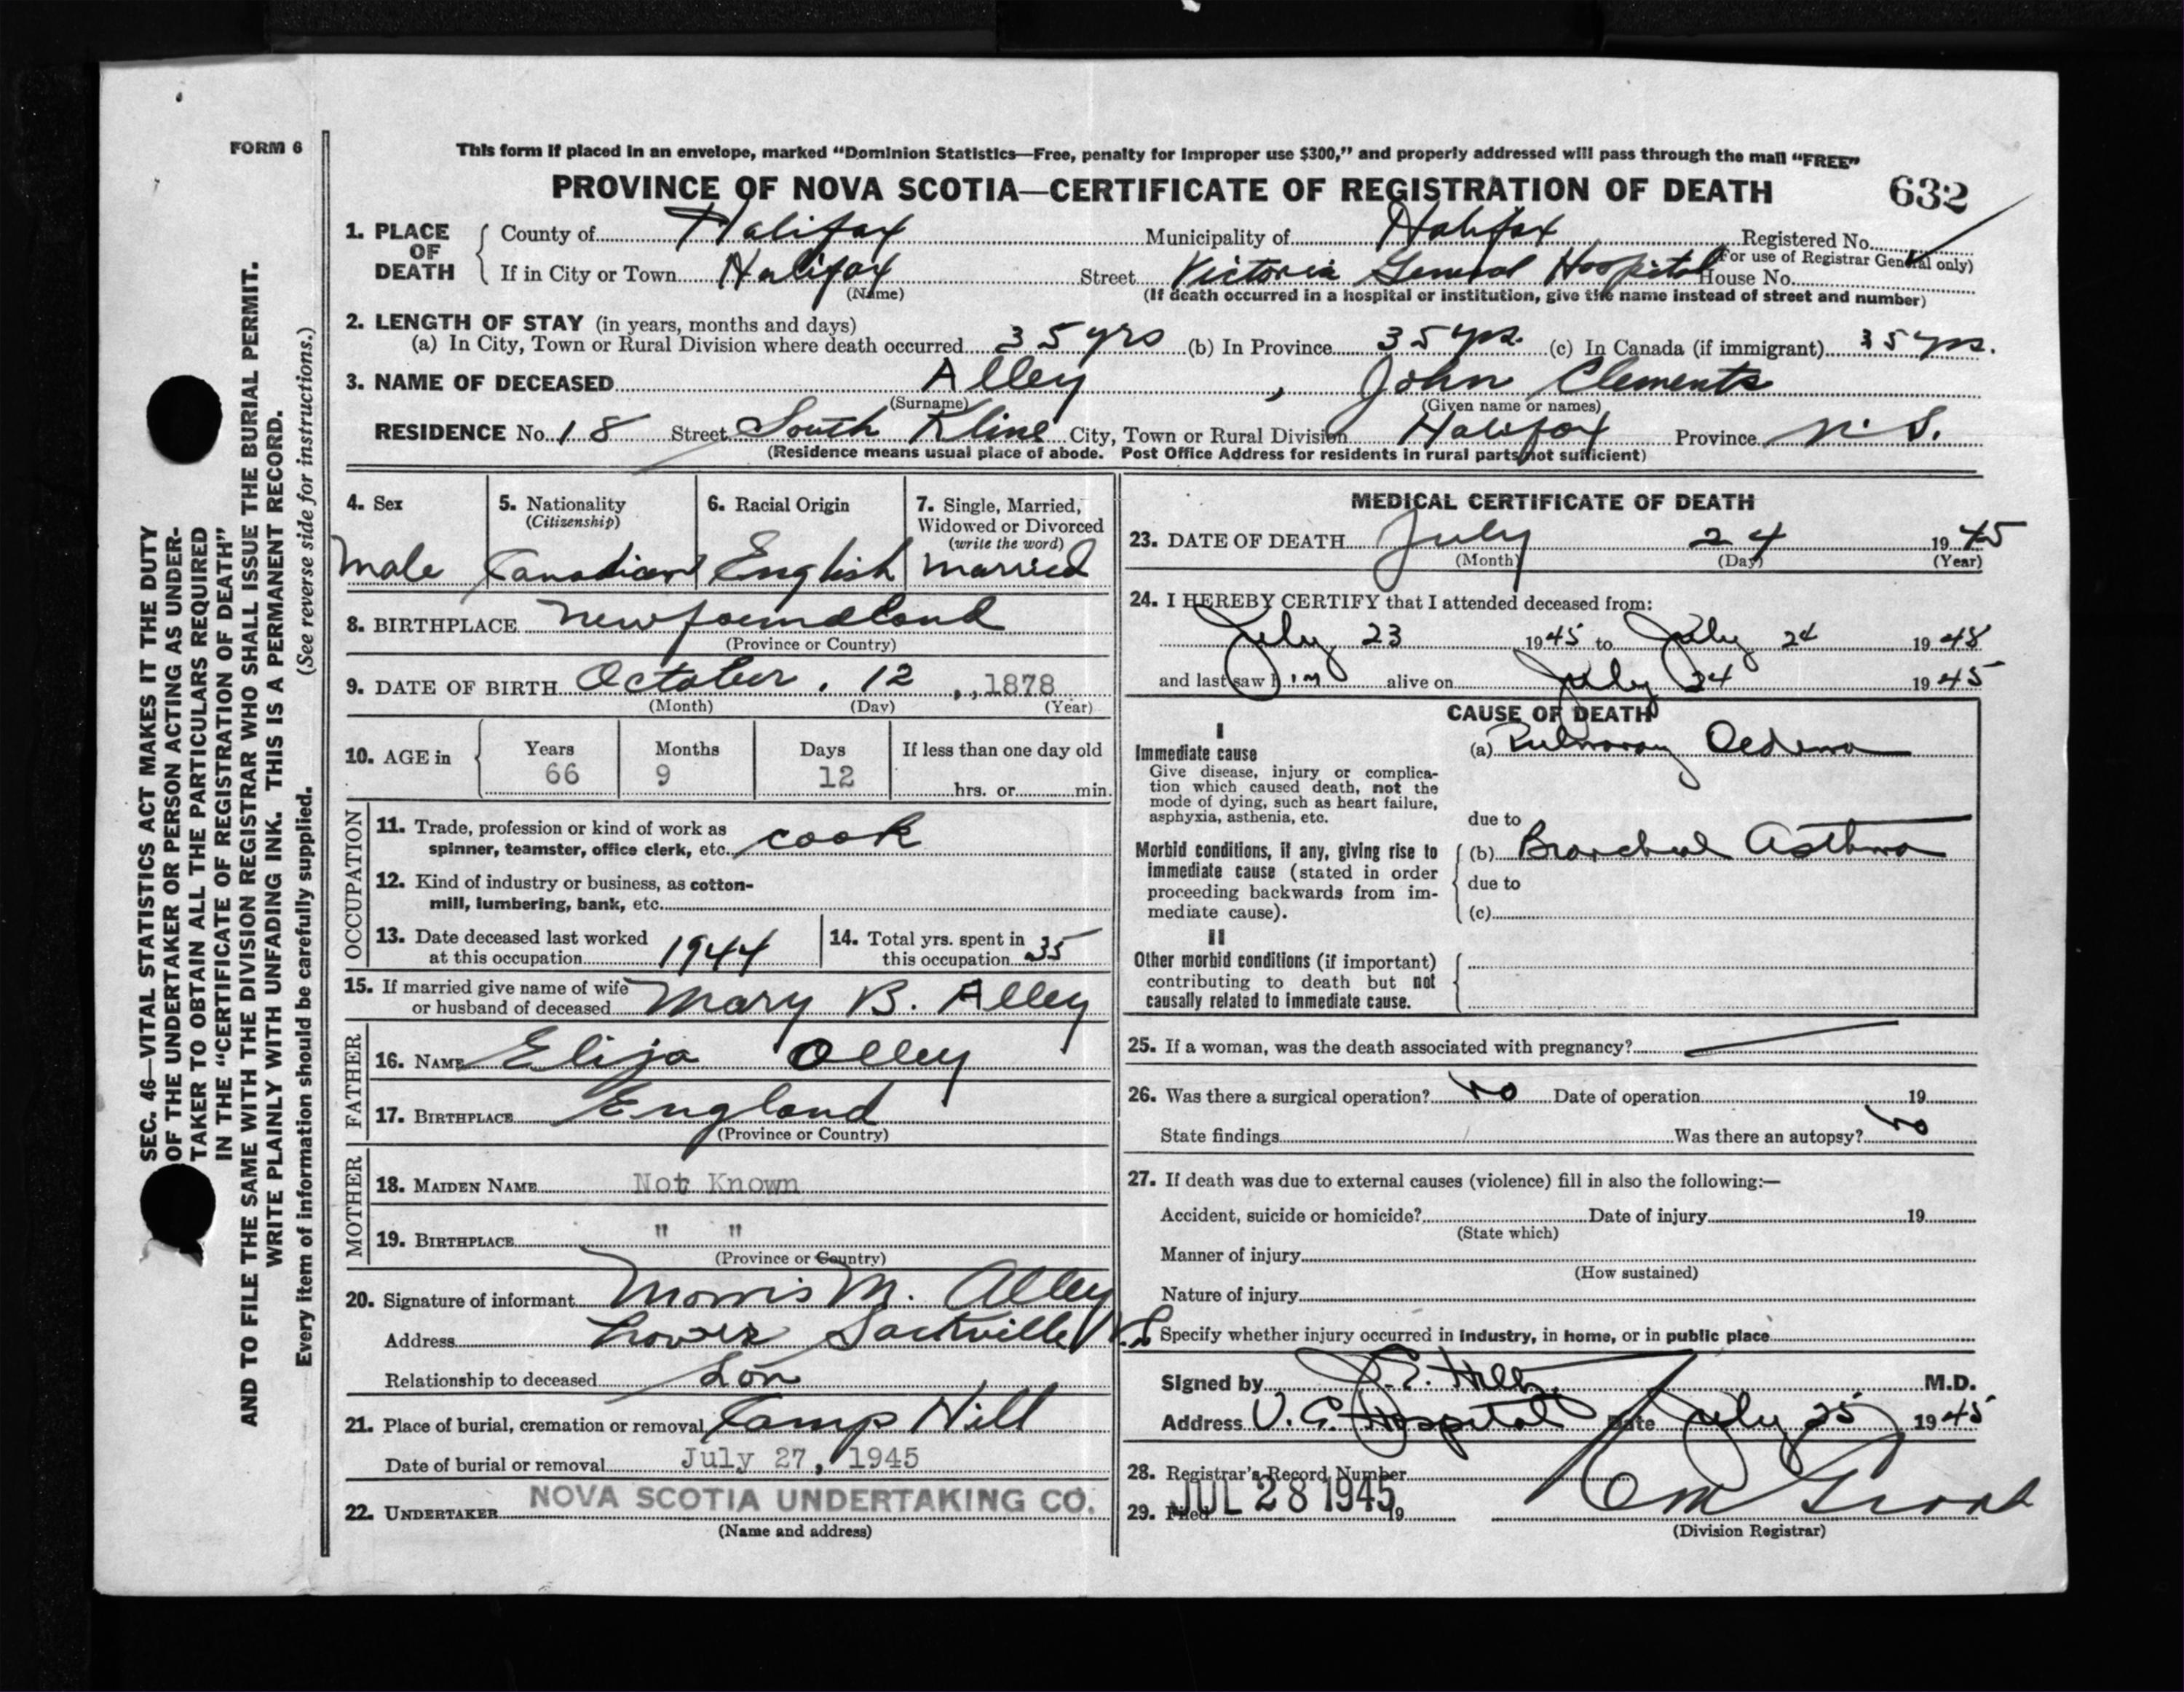 FORM 6
This form if placed in an envelope, marked "Dominion Statistics—Free, penalty for improper use $300," and properly addressed will pass through the mail "FREE"
PROVINCE OF NOVA SCOTIA—CERTIFICATE OF REGISTRATION OF DEATH 632
1. PLACE OF DEATH County of Halifax Municipality of Halifax Registered No.
(For use of Registrar General only)
If in City or Town Halifax Street Victoria General Hospital House No.
(Name) (If death occurred in a hospital or institution, give the name instead of street and number)
2. LENGTH OF STAY (in years, months and days)
(a) In City, Town or Rural Division where death occurred 35 yrs (b) In Province 35 yrs. (c) In Canada (if immigrant) 35 yrs.
3. NAME OF DECEASED Alley, John Clements
(Surname) (Given name or names)
RESIDENCE No. 18 Street South Kline City, Town or Rural Division Halifax Province N.S.
(Residence means usual place of abode. Post Office Address for residents in rural parts not sufficient)
4. Sex 5. Nationality 6. Racial Origin 7. Single, Married,
(Citizenship) Widowed or Divorced
(write the word)
Male Canadian English Married
8. BIRTHPLACE Newfoundland
(Province or Country)
9. DATE OF BIRTH October. 12,, 1878
(Month) (Day) (Year)
10. AGE in Years Months Days If less than one day old
66 9 12 hrs. or min.
OCCUPATION
11. Trade, profession or kind of work as
spinner, teamster, office clerk, etc. cook
12. Kind of industry or business, as cotton-
mill, lumbering, bank, etc.
13. Date deceased last worked
at this occupation 1944
14. Total yrs. spent in
this occupation 35
15. If married give name of wife
or husband of deceased Mary B. Alley
FATHER
16. NAME Elija Olley
17. BIRTHPLACE England
(Province or Country)
MOTHER
18. MAIDEN NAME Not Known
19. BIRTHPLACE " "
(Province or Country)
20. Signature of informant Morris M. Alley
Address Lower Sackville N.S.
Relationship to deceased Son
21. Place of burial, cremation or removal Camp Hill
Date of burial or removal July 27, 1945
22. UNDERTAKER NOVA SCOTIA UNDERTAKING CO.
(Name and address)
MEDICAL CERTIFICATE OF DEATH
23. DATE OF DEATH July 24 1945
(Month) (Day) (Year)
24. I HEREBY CERTIFY that I attended deceased from:
July 23 1945 to July 24 1945
and last saw him alive on July 24 1945
CAUSE OF DEATH
I
Immediate cause
Give disease, injury or complica-
tion which caused death, not the
mode of dying, such as heart failure,
asphyxia, asthenia, etc.
(a) Pulmonary Oedema
due to
Morbid conditions, if any, giving rise to
immediate cause (stated in order
proceeding backwards from im-
mediate cause).
(b) Bronchial Asthma
due to
(c)
II
Other morbid conditions (if important)
contributing to death but not
causally related to immediate cause.
25. If a woman, was the death associated with pregnancy?
26. Was there a surgical operation? No Date of operation 19
State findings Was there an autopsy? No
27. If death was due to external causes (violence) fill in also the following:—
Accident, suicide or homicide? Date of injury 19
(State which)
Manner of injury
(How sustained)
Nature of injury
Specify whether injury occurred in industry, in home, or in public place
Signed by J.E. Hill M.D.
Address V.G. Hospital Date July 25 1945
28. Registrar's Record Number
29. Filed JUL 28 1945 19
(Division Registrar)
SEC. 46—VITAL STATISTICS ACT MAKES IT THE DUTY
OF THE UNDERTAKER OR PERSON ACTING AS UNDER-
TAKER TO OBTAIN ALL THE PARTICULARS REQUIRED
IN THE "CERTIFICATE OF REGISTRATION OF DEATH"
AND TO FILE THE SAME WITH THE DIVISION REGISTRAR WHO SHALL ISSUE THE BURIAL PERMIT.
WRITE PLAINLY WITH UNFADING INK. THIS IS A PERMANENT RECORD.
Every item of information should be carefully supplied. (See reverse side for instructions.)